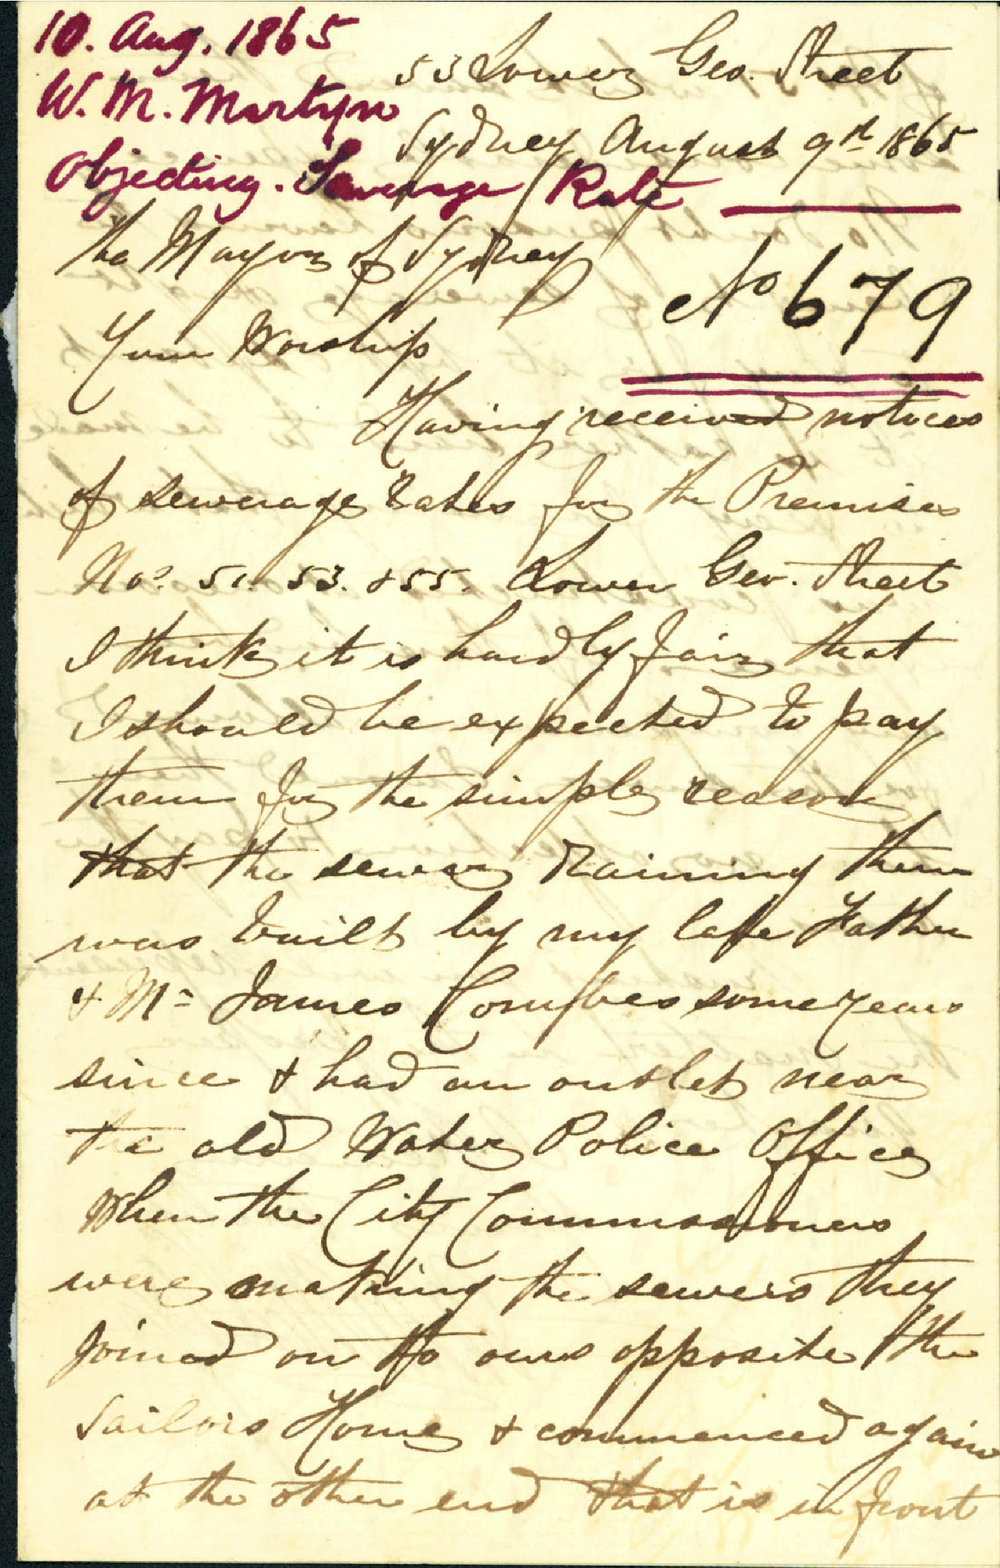 10. Aug. 1865
W. M. Martyn
Objecting. Sewerage Rate
53 Lower Geo. Street
Sydney August 9th 1865
The Mayor of Sydney
No 679
Your Worship
Having received notices
of sewerage rates for the Premises
Nos. 51. 53. & 55. Lower Geo. Street
I think it is hardly fair that
I should be expected to pay
them for the simple reason
that the sewer draining them
was built by my late Father
& Mr James Combes some years
since & had an outlet near
the old Water Police Office
When the City Commissioners
were making the sewers they
joined on to ours opposite the
Sailors Home & commenced again
at the other end that is in front